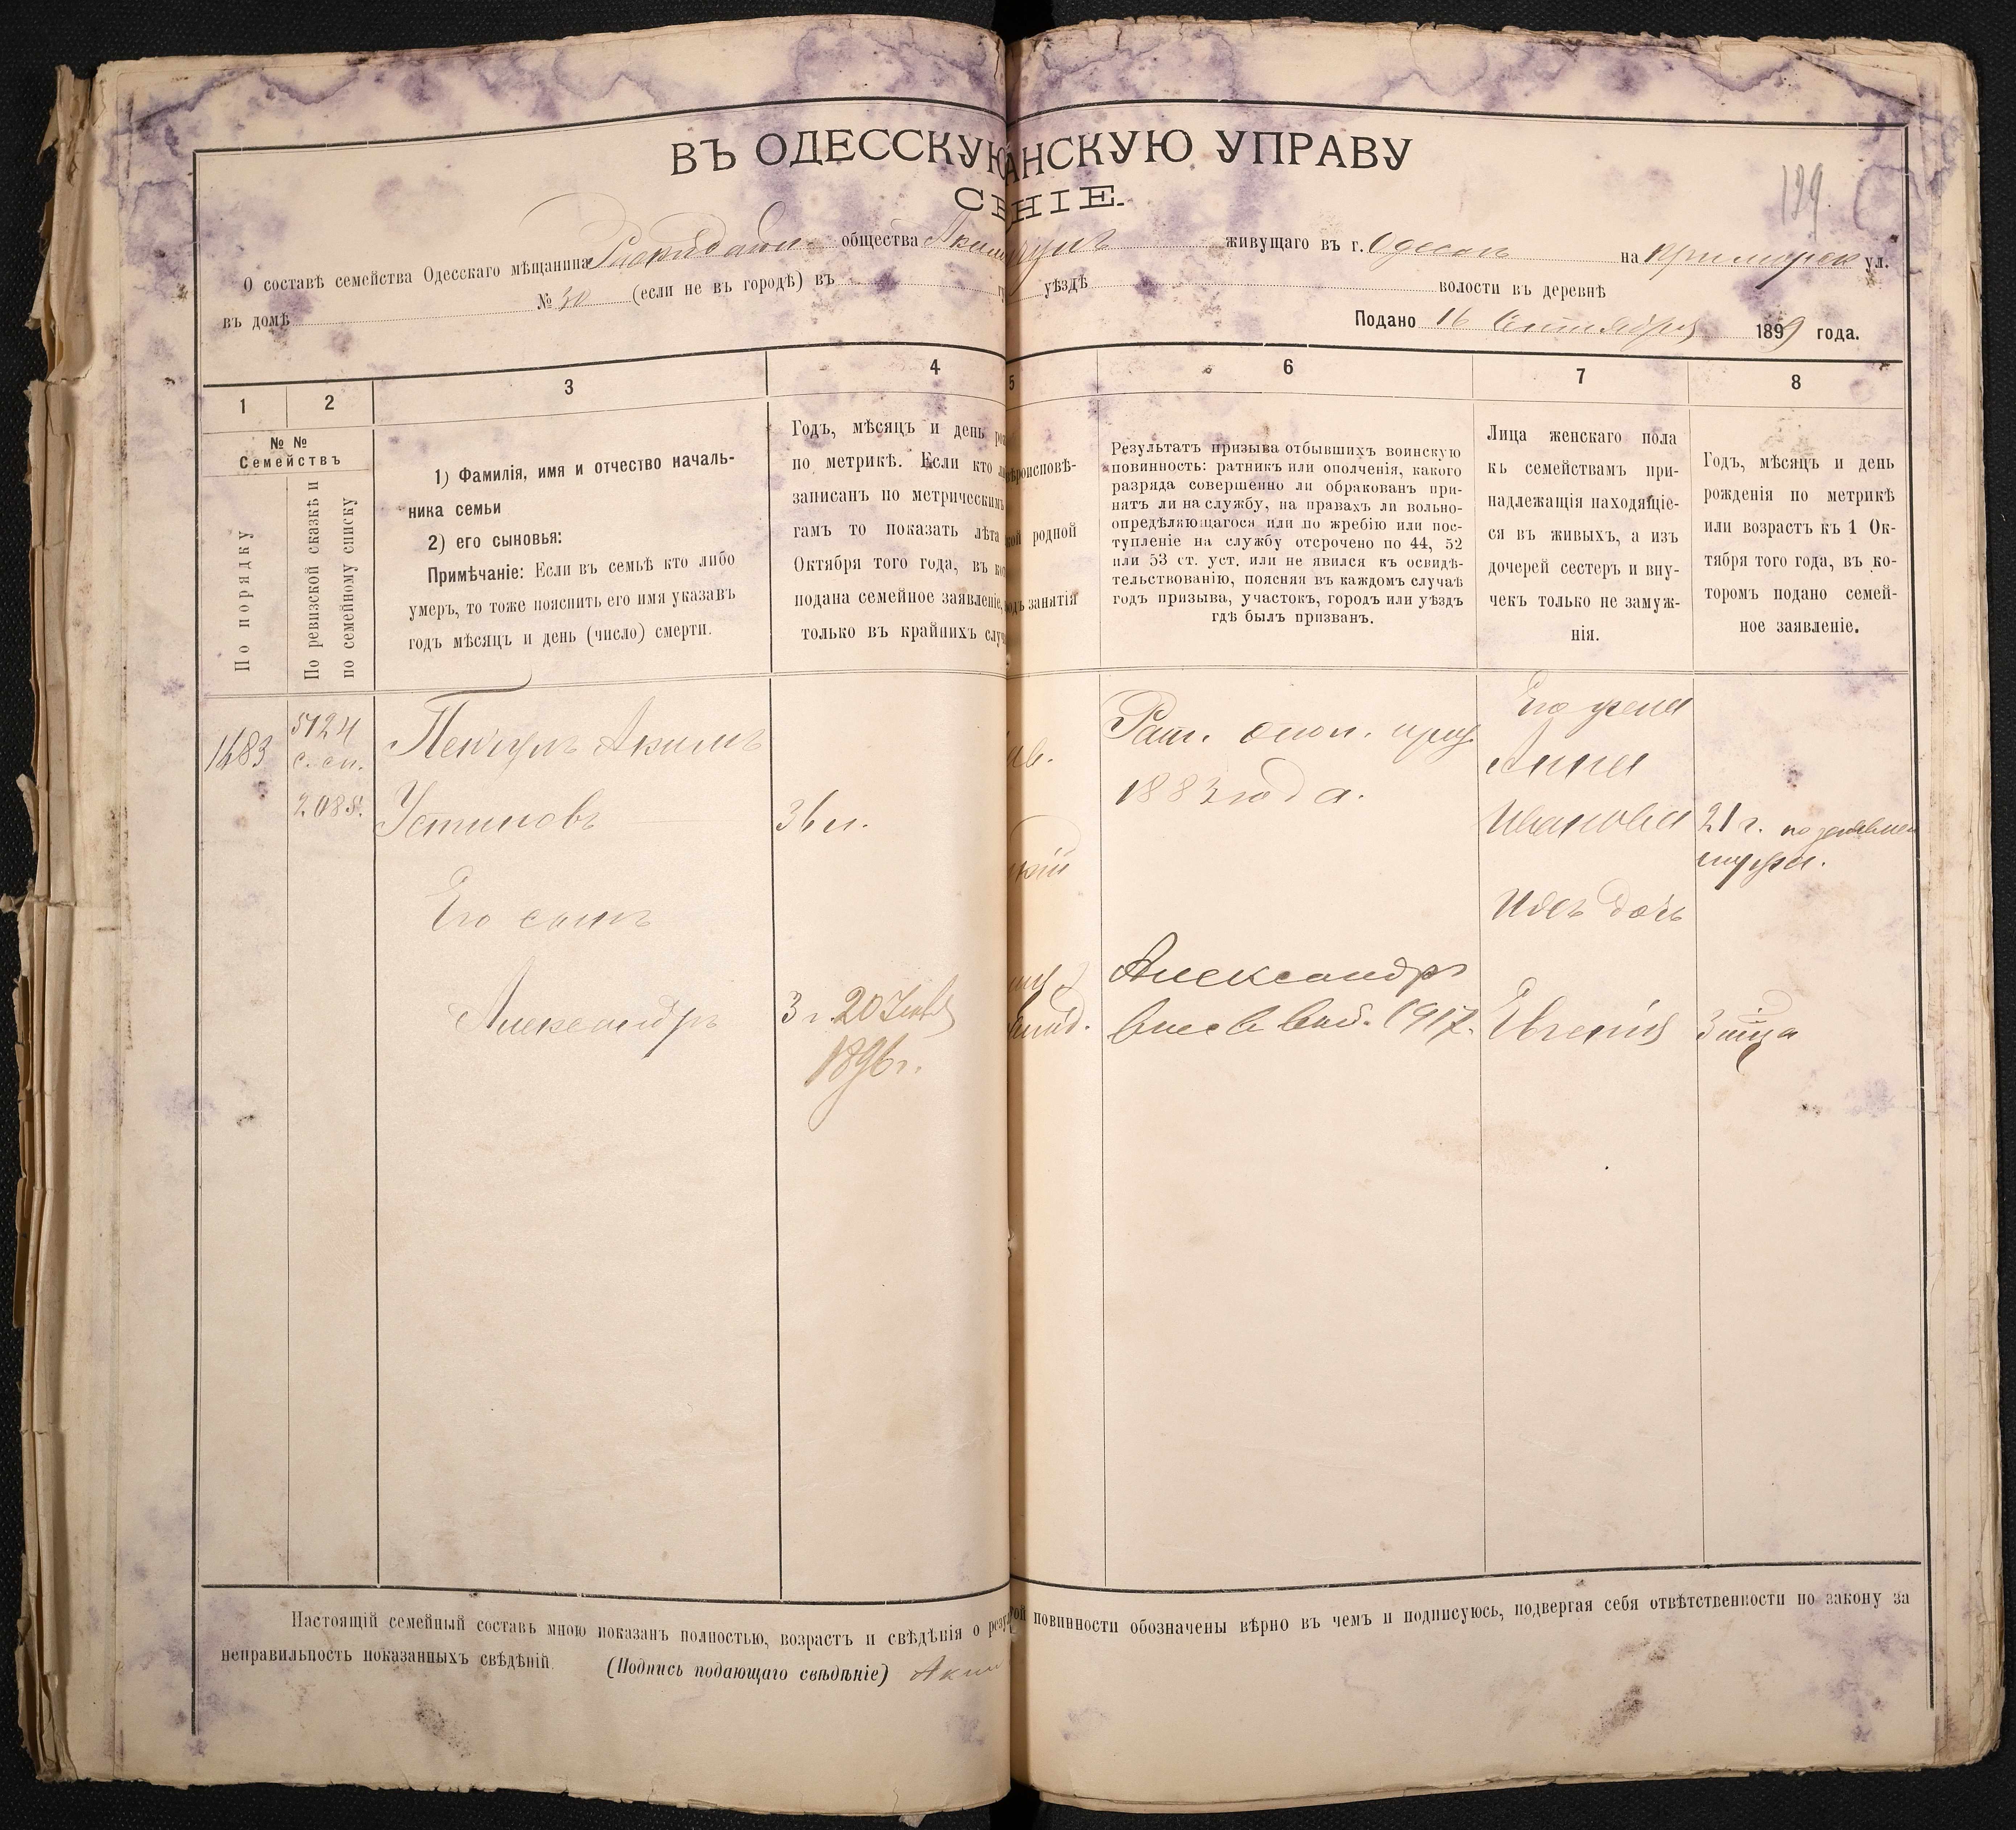 129.
ВЪ ОДЕССКУЮ АНСКУЮ УПРАВУ
СВ НІЕ.
О составѣ семейства Одесскаго мѣщанина общества живущаго въ г. Одессѣ на Приморск ул.
въ домѣ № 30 (если не въ городѣ) въ уѣздѣ волости въ деревнѣ
Подано 16 Сентября 1899 года.
1 2 3 4 5 6 7 8
№ №
Семействъ
По порядку
По ревизской сказкѣ и
по семейному списку
1) Фамилія, имя и отчество началь-
ника семьи
2) его сыновья:
Примѣчаніе: Если въ семьѣ кто либо
умеръ, то тоже пояснить его имя указавъ
годъ мѣсяцъ и день (число) смерти.
Годъ, мѣсяцъ и день ро
по метрикѣ. Если кто
записанъ по метрическимъ
гамъ то показать лѣта
Октября того года, въ ко
подана семейное заявленіе,
только въ крайнихъ случ
ѣроисповѣ-
кой родной
одъ занятія
Результатъ призыва отбывшихъ воинскую
повинность: ратникъ или ополченія, какого
разряда совершенно ли обракованъ при-
нятъ ли на службу, на правахъ ли вольно-
опредѣляющагося или по жребію или пос-
тупленіе на службу отсрочено по 44, 52
или 53 ст. уст. или не явился къ освидѣ-
тельствованію, поясняя въ каждомъ случаѣ
годъ призыва, участокъ, городъ или уѣздъ
гдѣ былъ призванъ.
Лица женскаго пола
къ семействамъ при-
надлежащія находящіе-
ся въ живыхъ, а изъ
дочерей сестеръ и вну-
чекъ только не замуж-
нія.
Годъ, мѣсяцъ и день
рожденія по метрикѣ
или возрастъ къ 1 Ок-
тября того года, въ ко-
торомъ подано семей-
ное заявленіе.
1483
5124
с. сп.
2088.
Пенчулъ Акимъ
Устиновъ
36 л.
Его сынъ
Александръ
3 г. 20 Января
1896 г.
ав.
кій
Рат. опол. приз.
1883 года.
Александръ
Его жена
Анна
Иванова
21 г. по заявлен
мужа.
Ихъ дочь
Евгенія
3 мѣс.
Настоящій семейный составъ мною показанъ полностью, возрастъ и свѣдѣнія о резу кой повинности обозначены вѣрно въ чемъ и подписуюсь, подвергая себя отвѣтственности по закону за
неправильность показанныхъ свѣдѣній. (Подпись подающаго свѣдѣніе) Аким